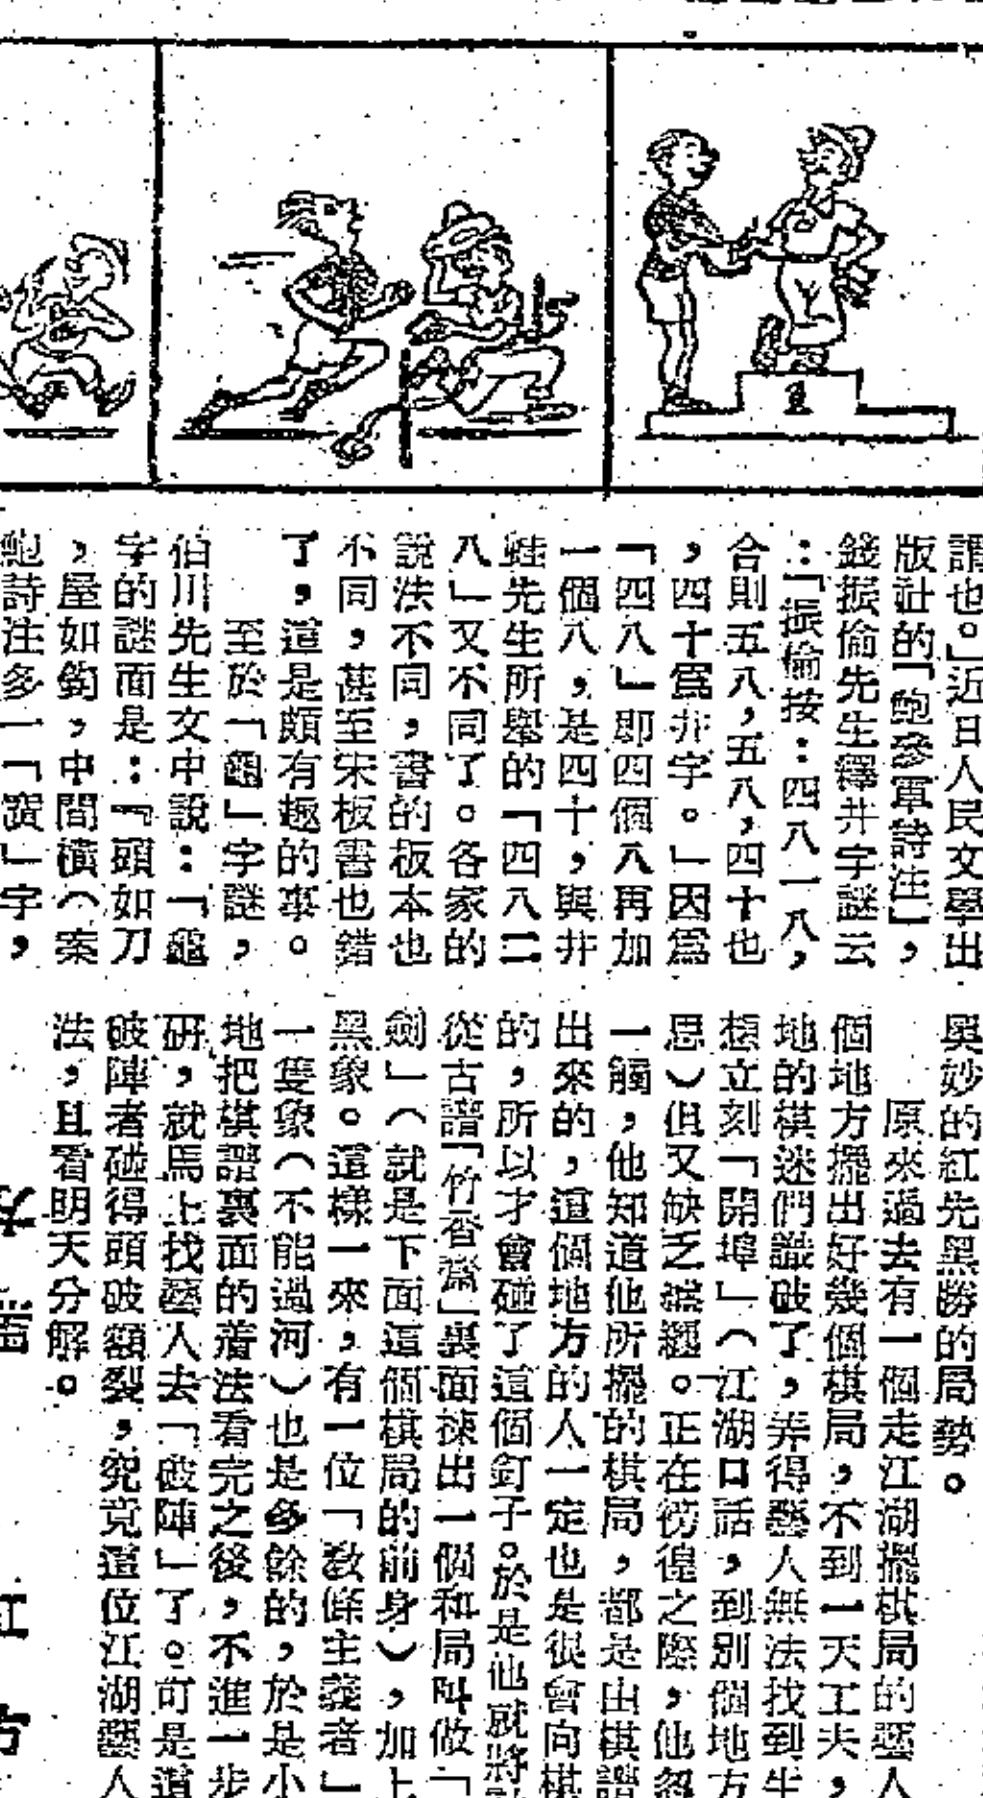 謂也。」近日人民文學出
版社的「鮑參軍詩注」，
錢振倫先生釋井字謎云
：「振倫按：四八一八，
合則五八，五八，四十也
，四十爲井字。」因爲
「四八」即四個八再加
一個八，是四十，與井
蛙先生所舉的「四八二
八」又不同了。各家的
說法不同，書的板本也
不同，甚至宋板書也錯
了，這是頗有趣的事。
至於「龜」字謎，
伯川先生文中說：「龜
字的謎面是：『頭如刀
，屋如鈎，中間橫（案
鮑詩注多一「寶」字，
奧妙的紅先黑勝的局勢。
原來過去有一個走江湖擺棋局的藝人
個地方擺出好幾個棋局，不到一天工夫，
地的棋迷們識破了，弄得藝人無法找到生
想立刻「開埠」（江湖口話，到別個地方
思）但又缺乏盤纏。正在徬徨之際，他忽
一觸，他知道他所擺的棋局，都是由棋譜
出來的，這個地方的人一定也是很會向棋
的，所以才會碰了這個釘子。於是他就將
從古譜「竹香齋」裏面揀出一個和局叫做「
劍」（就是下面這個棋局的前身），加上
黑象。這樣一來，有一位「教條主義者」
一隻象（不能過河）也是多餘的，於是小
地把棋譜裏面的着法看完之後，不進一步
研，就馬上找藝人去「破陣」了。可是這
破陣者碰得頭破額裂，究竟這位江湖藝人
法，且看明天分解。
紅
方